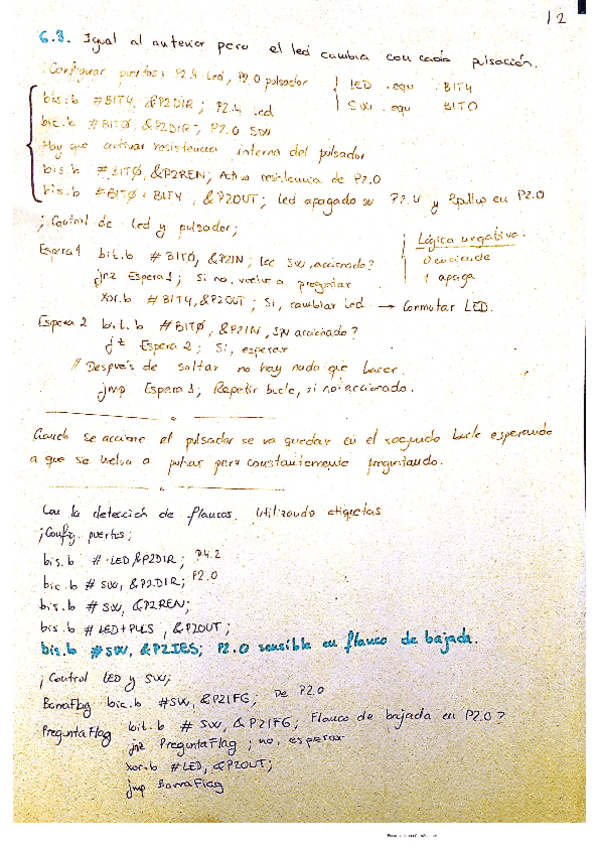 12
6.3. Igual al anterior pero el led cambia con cada pulsación.
Configurar puertos: P2.4 Led, P2.0 pulsador
LED .equ BIT4
SW .equ BIT0
bis.b #BIT4, &P2DIR; P2.4 led
bic.b #BITØ, &P2DIR; P2.0 SW
Hay que activar resistencia interna del pulsador
bis.b #BITØ, &P2REN; Activo resistencia de P2.0
bis.b #BITØ+BIT4, &P2OUT; led apagado en P2.4 y Rpullup en P2.0
; Control de led y pulsador;
Lógica negativa.
0 enciende
1 apaga
Espera1 bit.b #BITØ, &P2IN; lee SW, accionado?
jnz Espera1; Si no, vuelve a preguntar
xor.b #BIT4, &P2OUT; Si, cambiar led → Conmutar LED.
Espera 2 bit.b #BITØ, &P2IN, SW accionado?
jz Espera 2; Si, esperar
// Después de saltar no hay nada que hacer.
jmp Espera1; Repetir bucle, si no accionado.
Cuando se accione el pulsador se va quedar en el segundo bucle esperando
a que se vuelva a pulsar pero constantemente preguntando.
Con la detección de flancos. Utilizando etiquetas
;Config. puertos;
bis.b #LED &P2DIR; P4.2
bic.b #SW, &P2DIR; P2.0
bis.b #SW, &P2REN;
bis.b #LED+PULS, &P2OUT;
bis.b #SW, &P2IES; P2.0 sensible en flanco de bajada.
; Control LED y SW;
BorraFlag bic.b #SW, &P2IFG; De P2.0
PreguntaFlag bit.b #SW, &P2IFG; Flanco de bajada en P2.0?
jnz PreguntaFlag; no, esperar
xor.b #LED, &P2OUT;
jmp BorraFlag